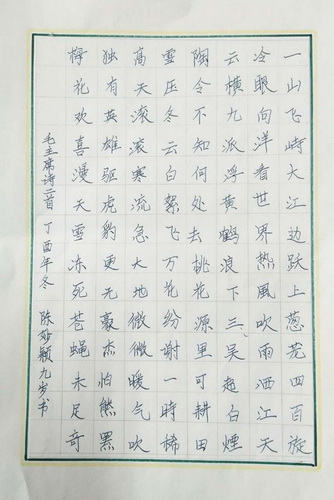 一山飞峙大江边跃上葱茏四百旋
冷眼向洋看世界热風吹雨洒江天
云横九派浮黄鹤浪下三吴起白煙
陶令不知何处去桃花源里可耕田
雪压冬云白絮飞万花纷谢一時稀
高天滚滚寒流急大地微微暖气吹
独有英雄驱虎豹更无豪杰怕熊罴
梅花欢喜漫天雪冻死苍蝇未足奇
毛主席诗二首 丁酉年冬 陈妙颖九岁书